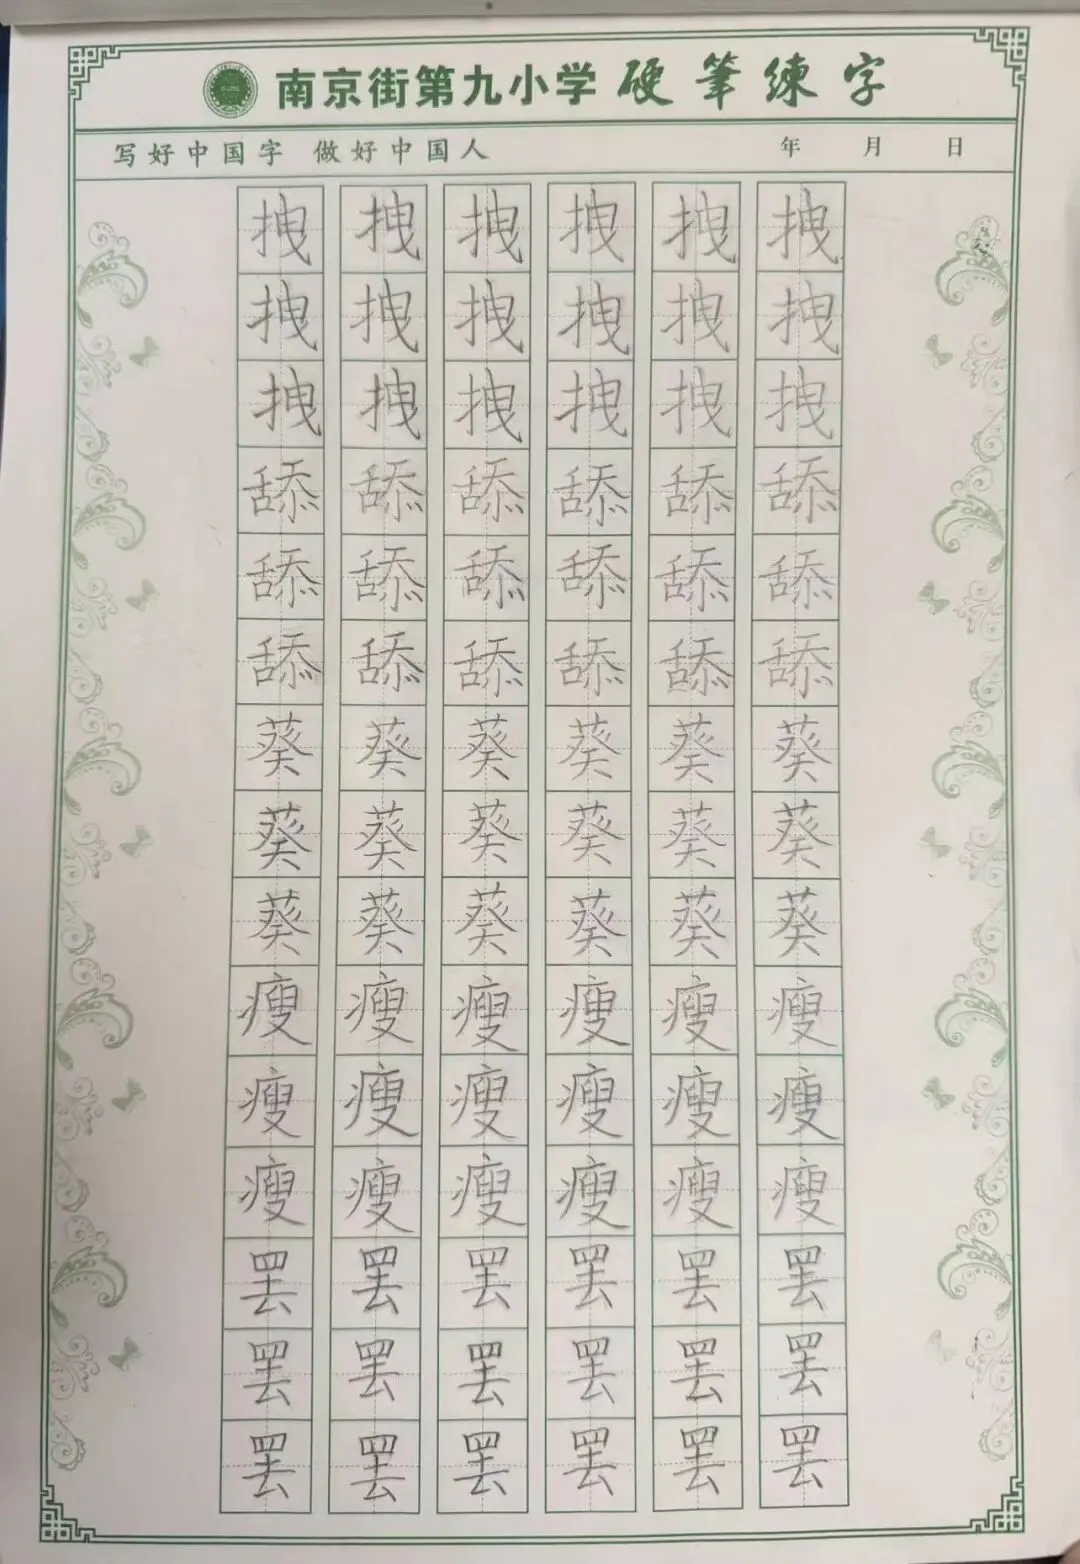 南京街第九小学 硬筆練字
写好中国字 做好中国人 年 月 日
拽拽拽拽拽拽
拽拽拽拽拽拽
拽拽拽拽拽拽
舔舔舔舔舔舔
舔舔舔舔舔舔
舔舔舔舔舔舔
葵葵葵葵葵葵
葵葵葵葵葵葵
葵葵葵葵葵葵
瘦瘦瘦瘦瘦瘦
瘦瘦瘦瘦瘦瘦
瘦瘦瘦瘦瘦瘦
罢罢罢罢罢罢
罢罢罢罢罢罢
罢罢罢罢罢罢